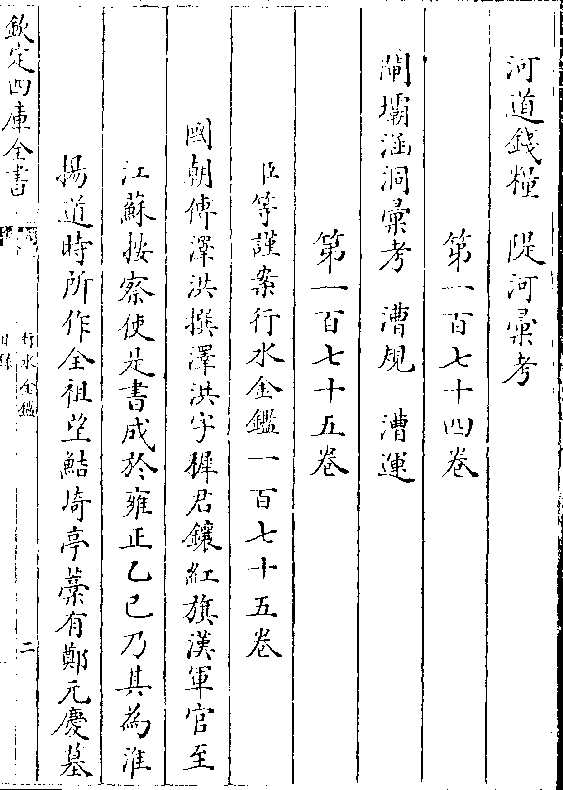 河道錢糧　隄河彙考
第一百七十四卷
閘壩涵洞彙考　漕規　漕運
第一百七十五卷
臣等謹案行水金鑑一百七十五卷
國朝傅澤洪撰澤洪字穉君鑲紅旗漢軍官至
江蘇按察使是書成於雍正乙巳乃其為淮
揚道時所作全祖望鮚埼亭藁有鄭元慶墓
欽定四庫全書
行水金鑑
目錄
二